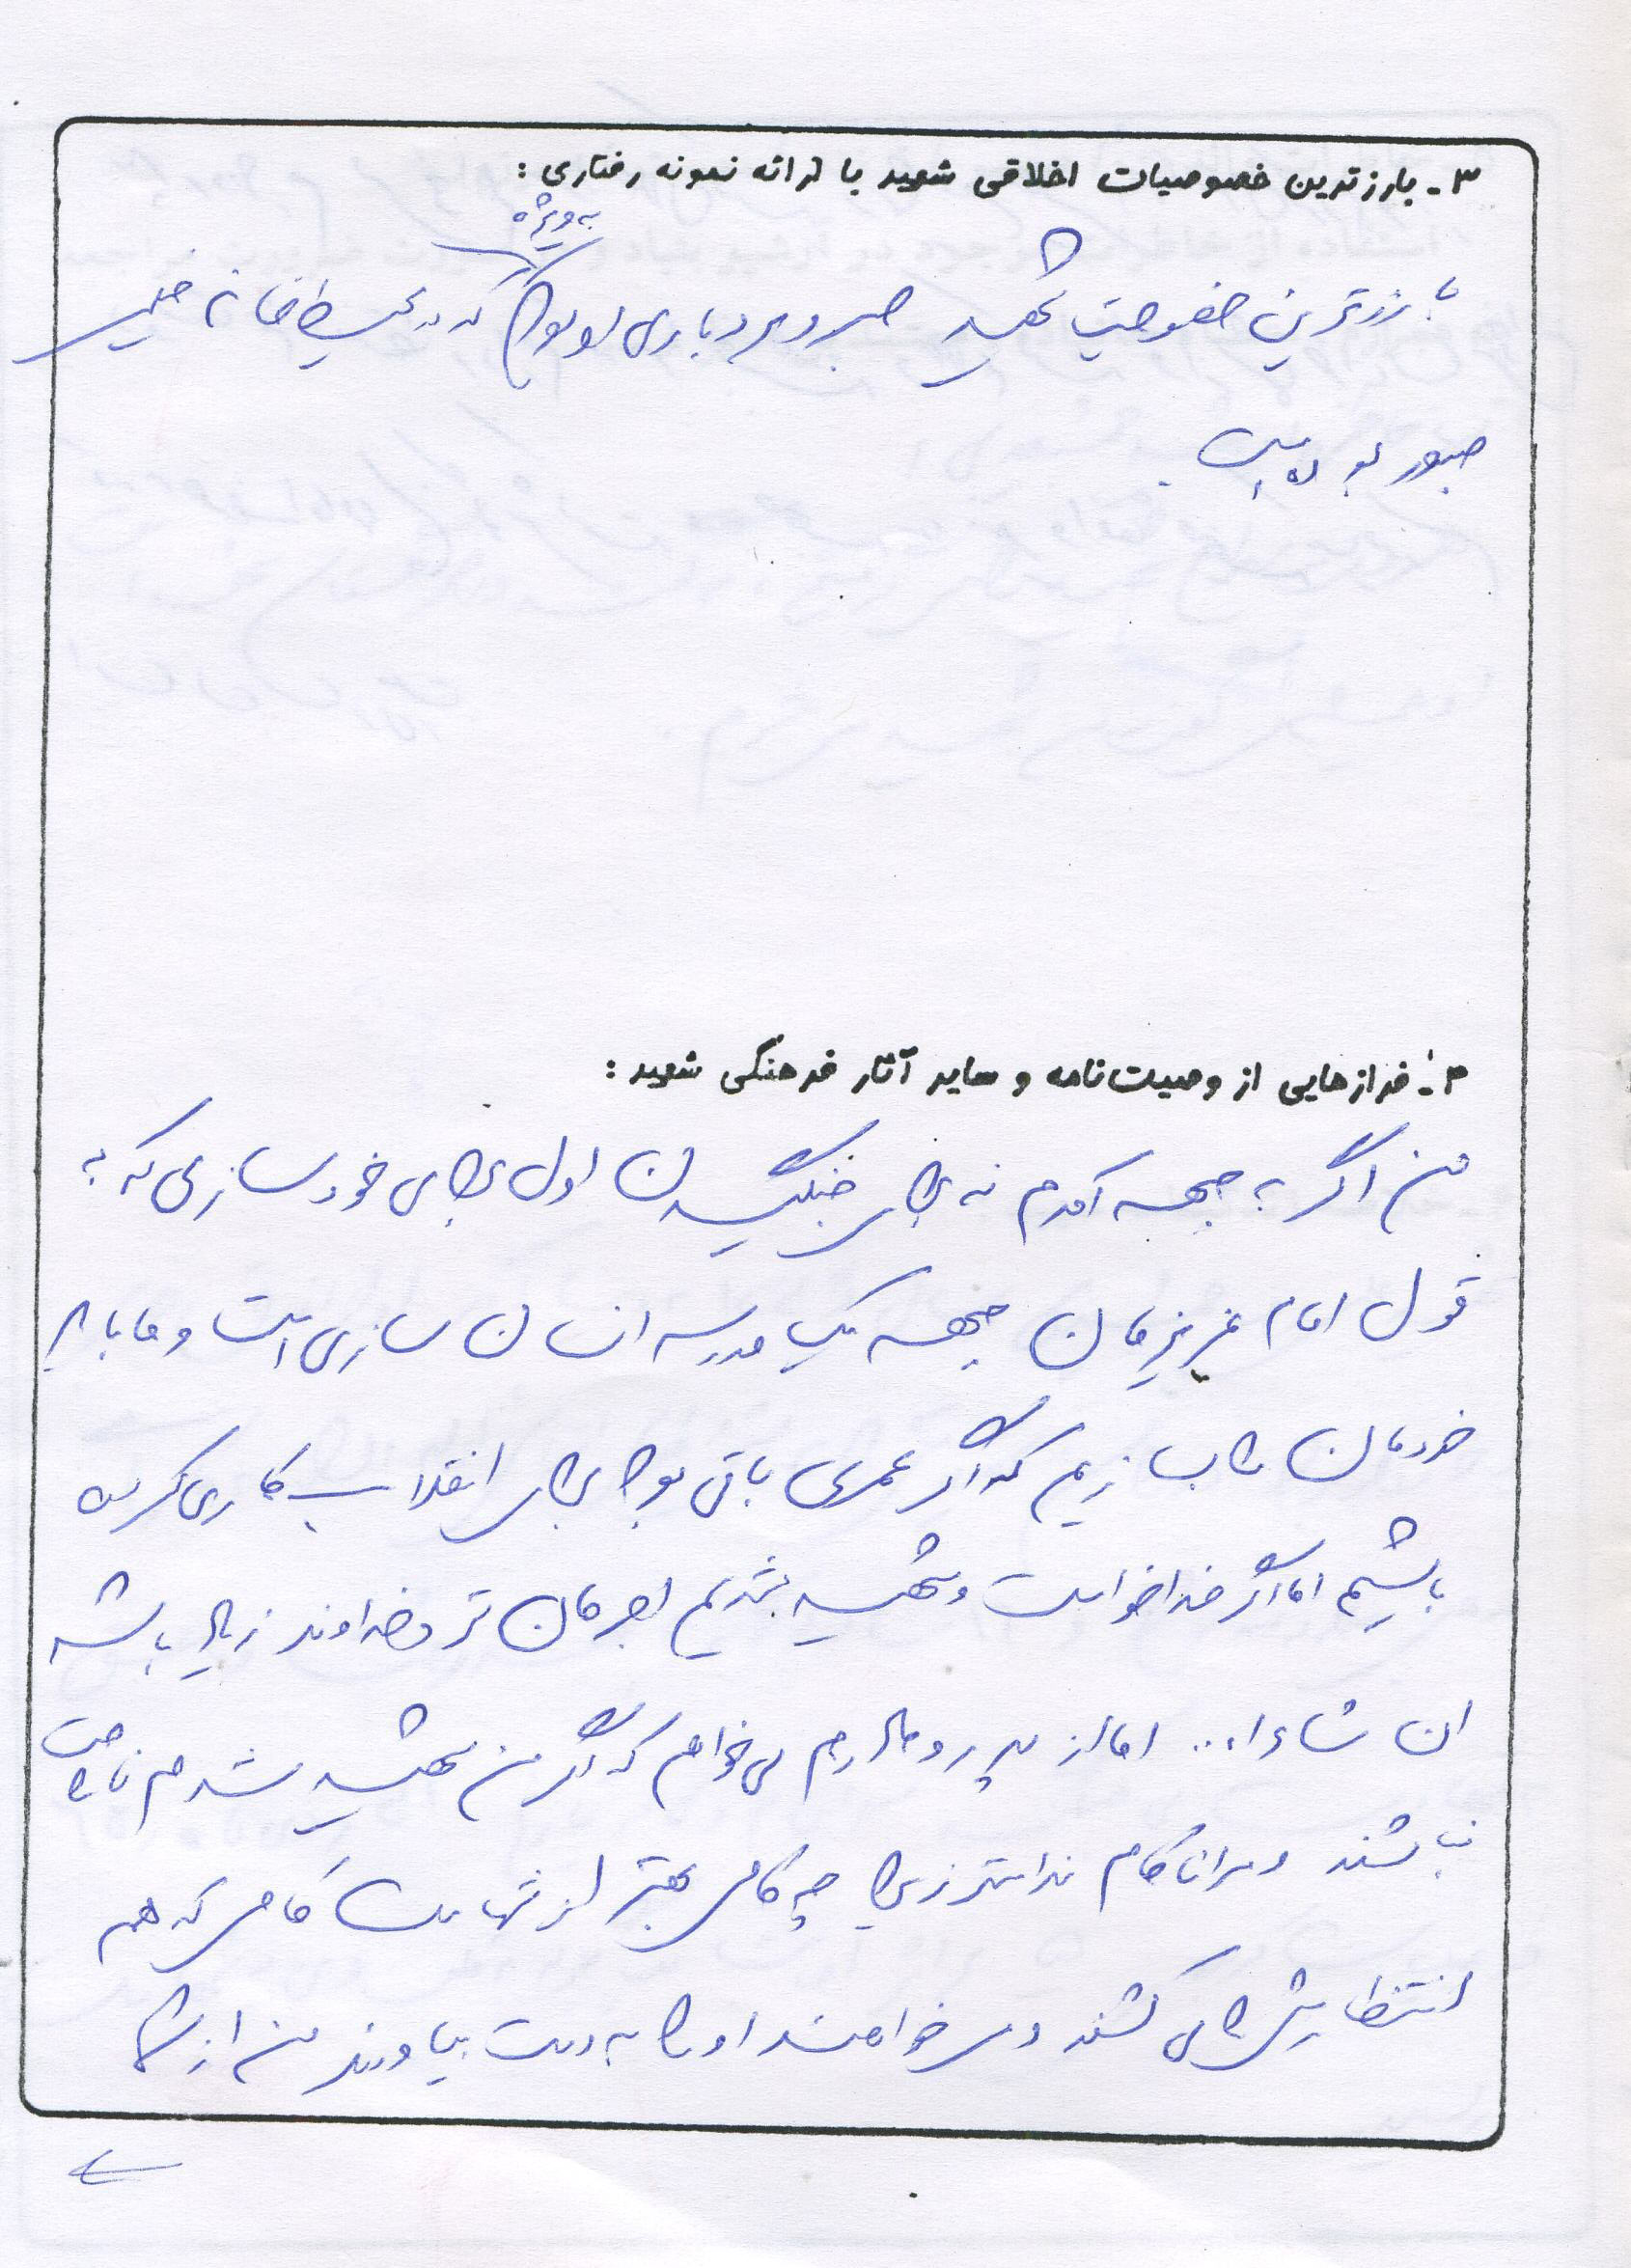 ۳- بارزترین خصوصیات اخلاقی شهید با ارائه نمونه رفتاری :
به ویژه
بارزترین خصوصیت شهید صبر و بردباری او بود که در محیط خانه خیلی
صبور بوده است.
۴- فرازهایی از وصیت‌نامه و سایر آثار فرهنگی شهید :
من اگر به جبهه آمدم نه برای جنگیدن اول برای خودسازی که به
قول امام عزیزمان جبهه یک مدرسه انسان سازی است و ما باید
خودمان را بسازیم که اگر عمری باقی بود برای انقلاب کاری کرده
باشیم اما اگر خدا خواست و شهید شدیم اجرمان نزد خداوند زیاد باشد
ان شاء ا... اما از پدر و مادرم می خواهم که اگر من شهید شدم ناراحت
نباشند و مرا ناکام ندانند زیرا چه کامی بهتر از شهادت کامی که همه
انتظارش را می کشند و می خواهند او را به دست بیاورند من از شما